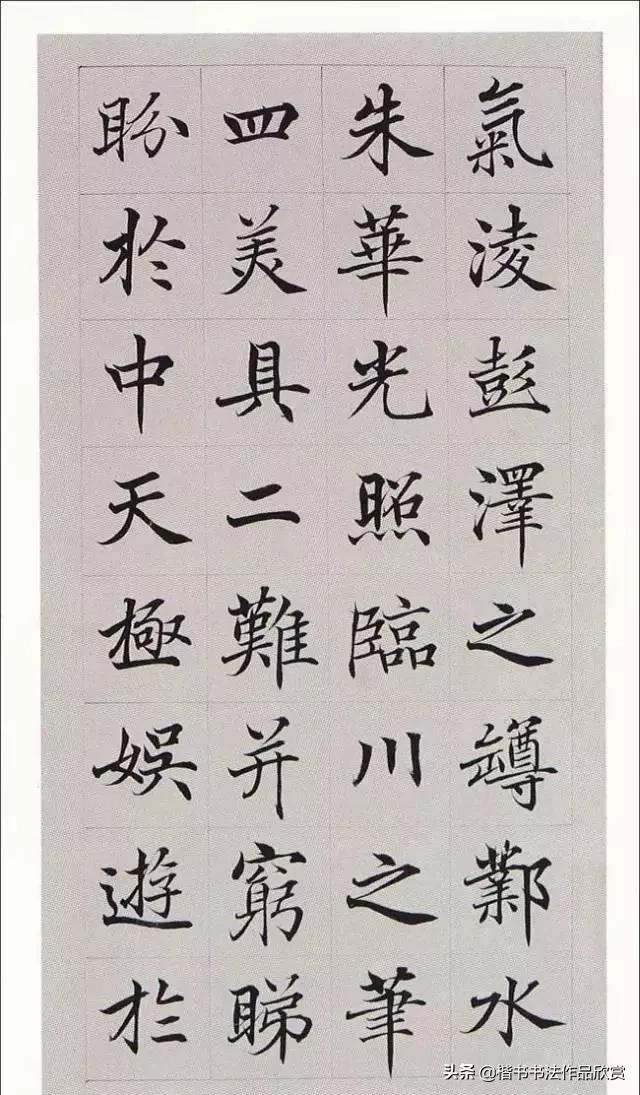 氣淩彭澤之罇鄴水
朱華光照臨川之筆
四美具二難并窮睇
盼於中天極娛遊於
头条 @楷书书法作品欣赏